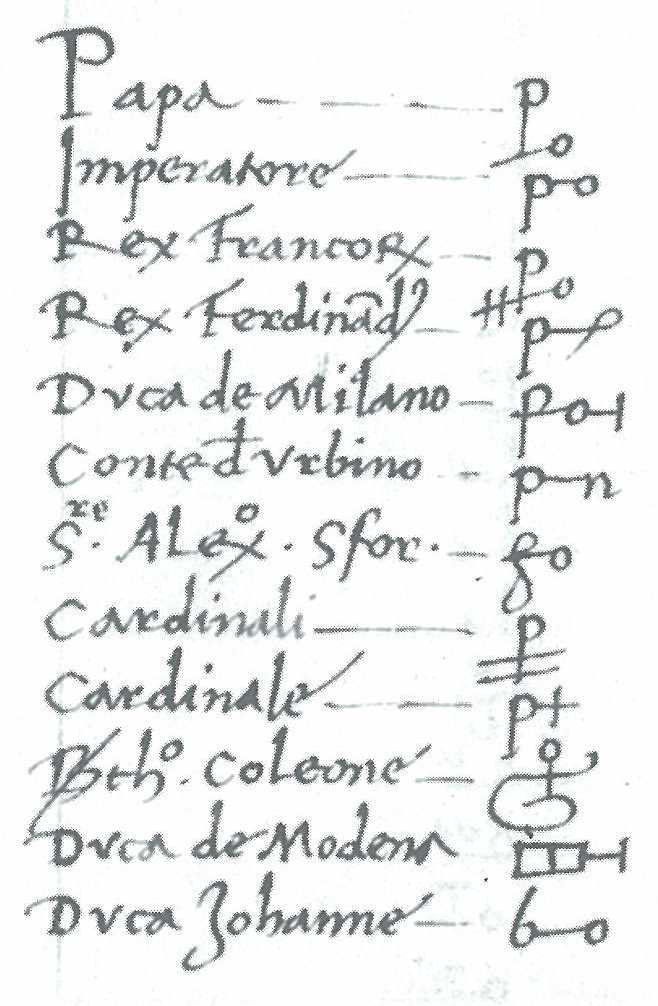 Papa
Imperatore
Rex Francoꝝ
Rex Ferdinãdꝰ
Dvca de Milano
Conte d Vrbino
S.re Alexo. Sfor.
Cardinali
Cardinale
Btho. Coleone
Dvca de Modena
Dvca Johanne